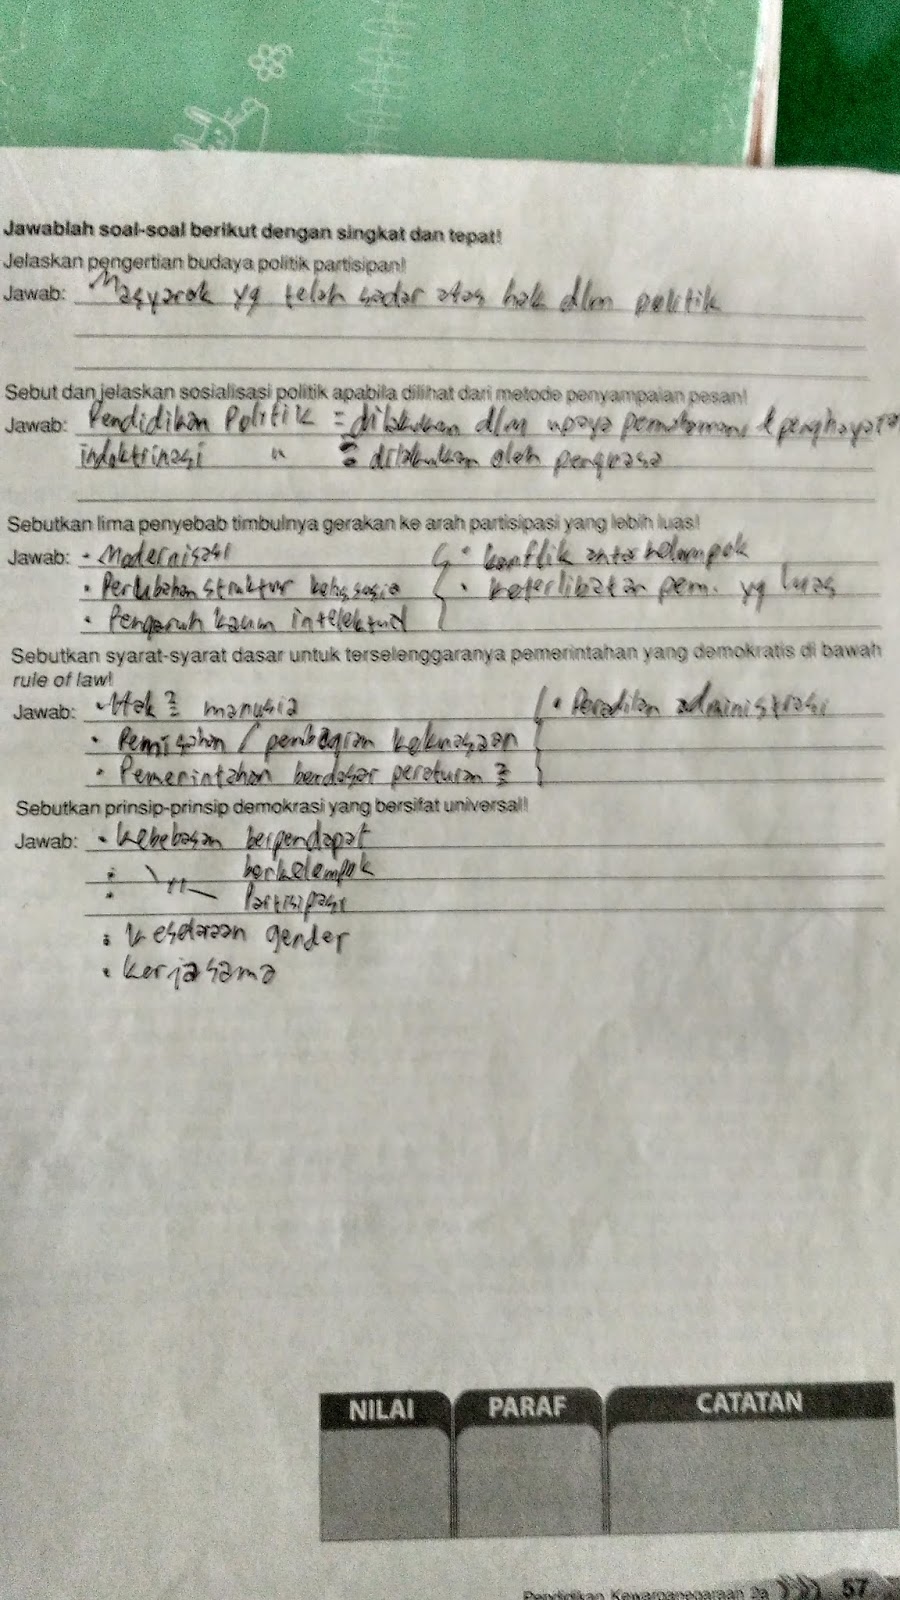 Jawablah soal-soal berikut dengan singkat dan tepat!
Jelaskan pengertian budaya politik partisipan!
Jawab: Masyarak yg telah sadar atas hak dlm politik
Sebut dan jelaskan sosialisasi politik apabila dilihat dari metode penyampaian pesan!
Jawab: Pendidikan Politik = dilakukan dlm upaya pemahaman & penghayata
indoktrinasi " = dilakukan oleh penguasa
Sebutkan lima penyebab timbulnya gerakan ke arah partisipasi yang lebih luas!
Jawab: • Modernisasi • konflik antar kelompok
• Perubahan struktur kelas sosia • keterlibatan pem. yg luas
• Pengaruh kaum intelektual
Sebutkan syarat-syarat dasar untuk terselenggaranya pemerintahan yang demokratis di bawah
rule of law!
Jawab: • Hak 2 manusia • Peradilan administrasi
• Pemisahan / pembagian kekuasaan
• Pemerintahan berdasar peraturan 2
Sebutkan prinsip-prinsip demokrasi yang bersifat universal!
Jawab: • Kebebasan berpendapat
• " berkelompok
• Partisipasi
• Kesetaraan gender
• Kerjasama
NILAI PARAF CATATAN
Pendidikan Kewarganegaraan 2a 57